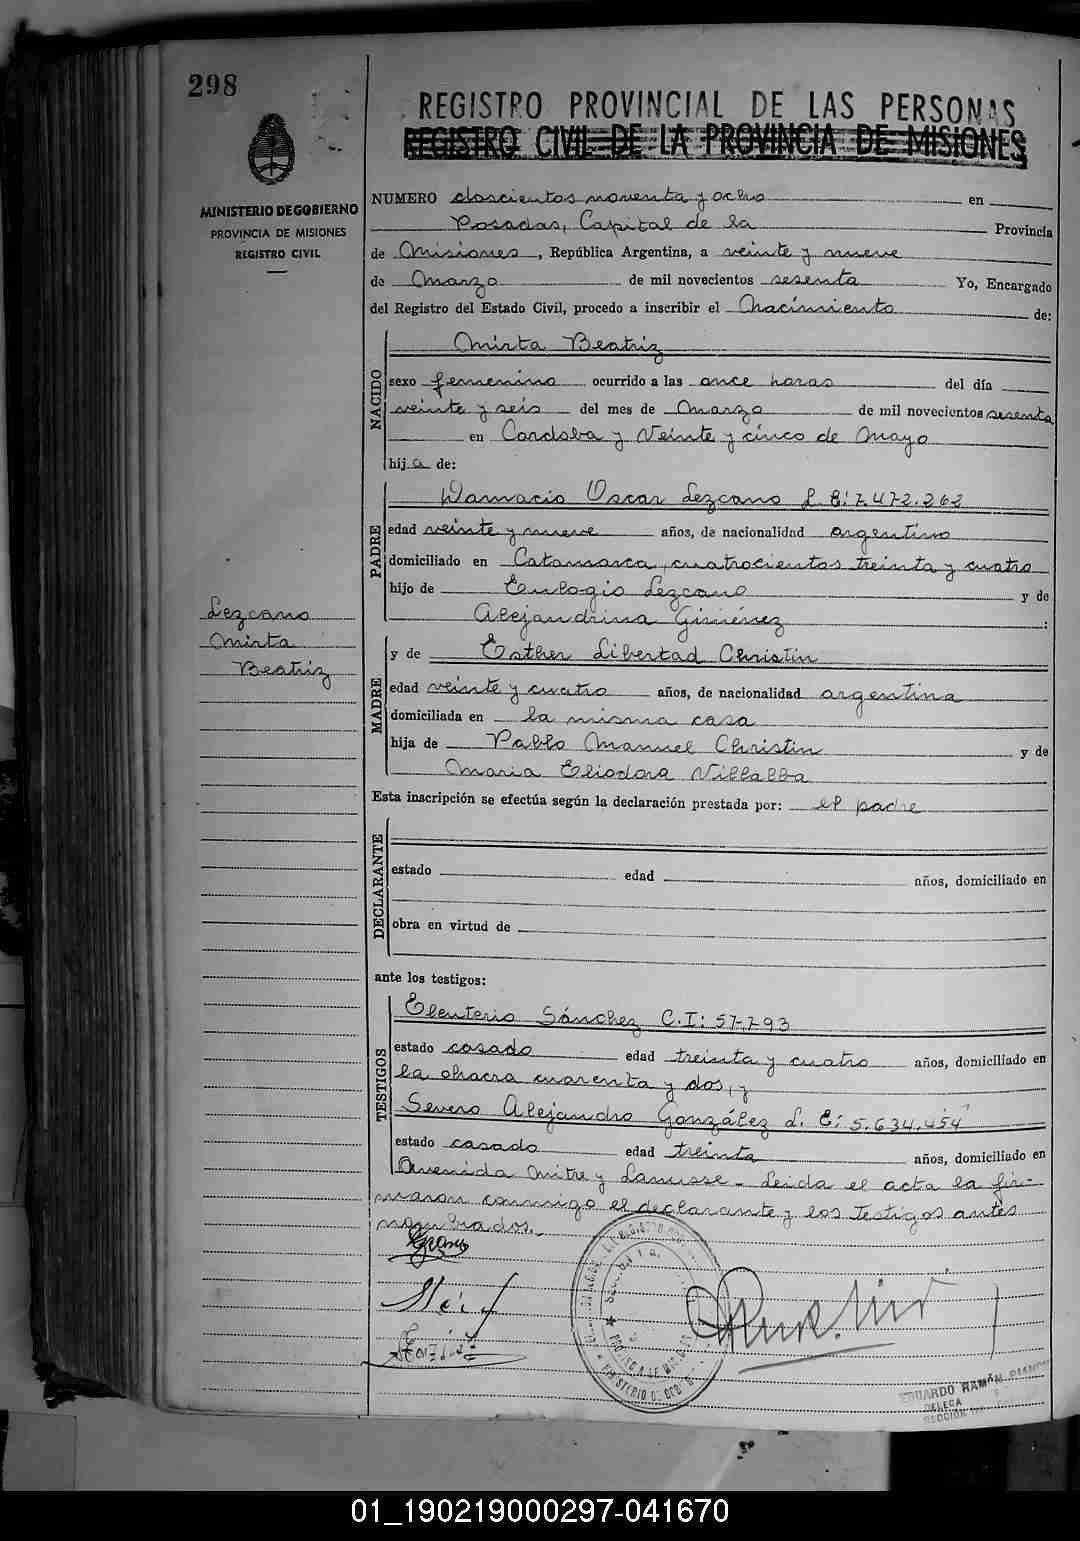 298
REGISTRO PROVINCIAL DE LAS PERSONAS
REGISTRO CIVIL DE LA PROVINCIA DE MISIONES
MINISTERIO DE GOBIERNO
PROVINCIA DE MISIONES
REGISTRO CIVIL
NUMERO doscientos noventa y ocho en
Posadas, Capital de la Provincia
de Misiones, República Argentina, a veinte y nueve
de Marzo de mil novecientos sesenta Yo, Encargado
del Registro del Estado Civil, procedo a inscribir el Nacimiento de:
NACIDO
Mirta Beatriz
sexo femenino ocurrido a las once horas del día
veinte y seis del mes de Marzo de mil novecientos sesenta
en Cordoba y Veinte y cinco de Mayo
hija de:
PADRE
Damacio Oscar Lezcano L.E: 7.472.262
edad veinte y nueve años, de nacionalidad argentino
domiciliado en Catamarca, cuatrocientos treinta y cuatro
hijo de Eulogio Lezcano y de
Alejandrina Giménez :
Lezcano
Mirta
Beatriz
MADRE
y de Esther Libertad Christin
edad veinte y cuatro años, de nacionalidad argentina
domiciliada en la misma casa
hija de Pablo Manuel Christin y de
Maria Eliodora Villalba
Esta inscripción se efectúa según la declaración prestada por: el padre
DECLARANTE
estado edad años, domiciliado en
obra en virtud de
ante los testigos:
TESTIGOS
Eleuterio Sánchez C.I: 57.793
estado casado edad treinta y cuatro años, domiciliado en
la chacra cuarenta y dos, y
Severo Alejandro González L. E: 5.634.454
estado casado edad treinta años, domiciliado en
Avenida Mitre y Lanusse. Leida el acta la fir-
maron conmigo el declarante y los testigos antes
nombrados.
EDUARDO RAMÓN
01_190219000297-041670